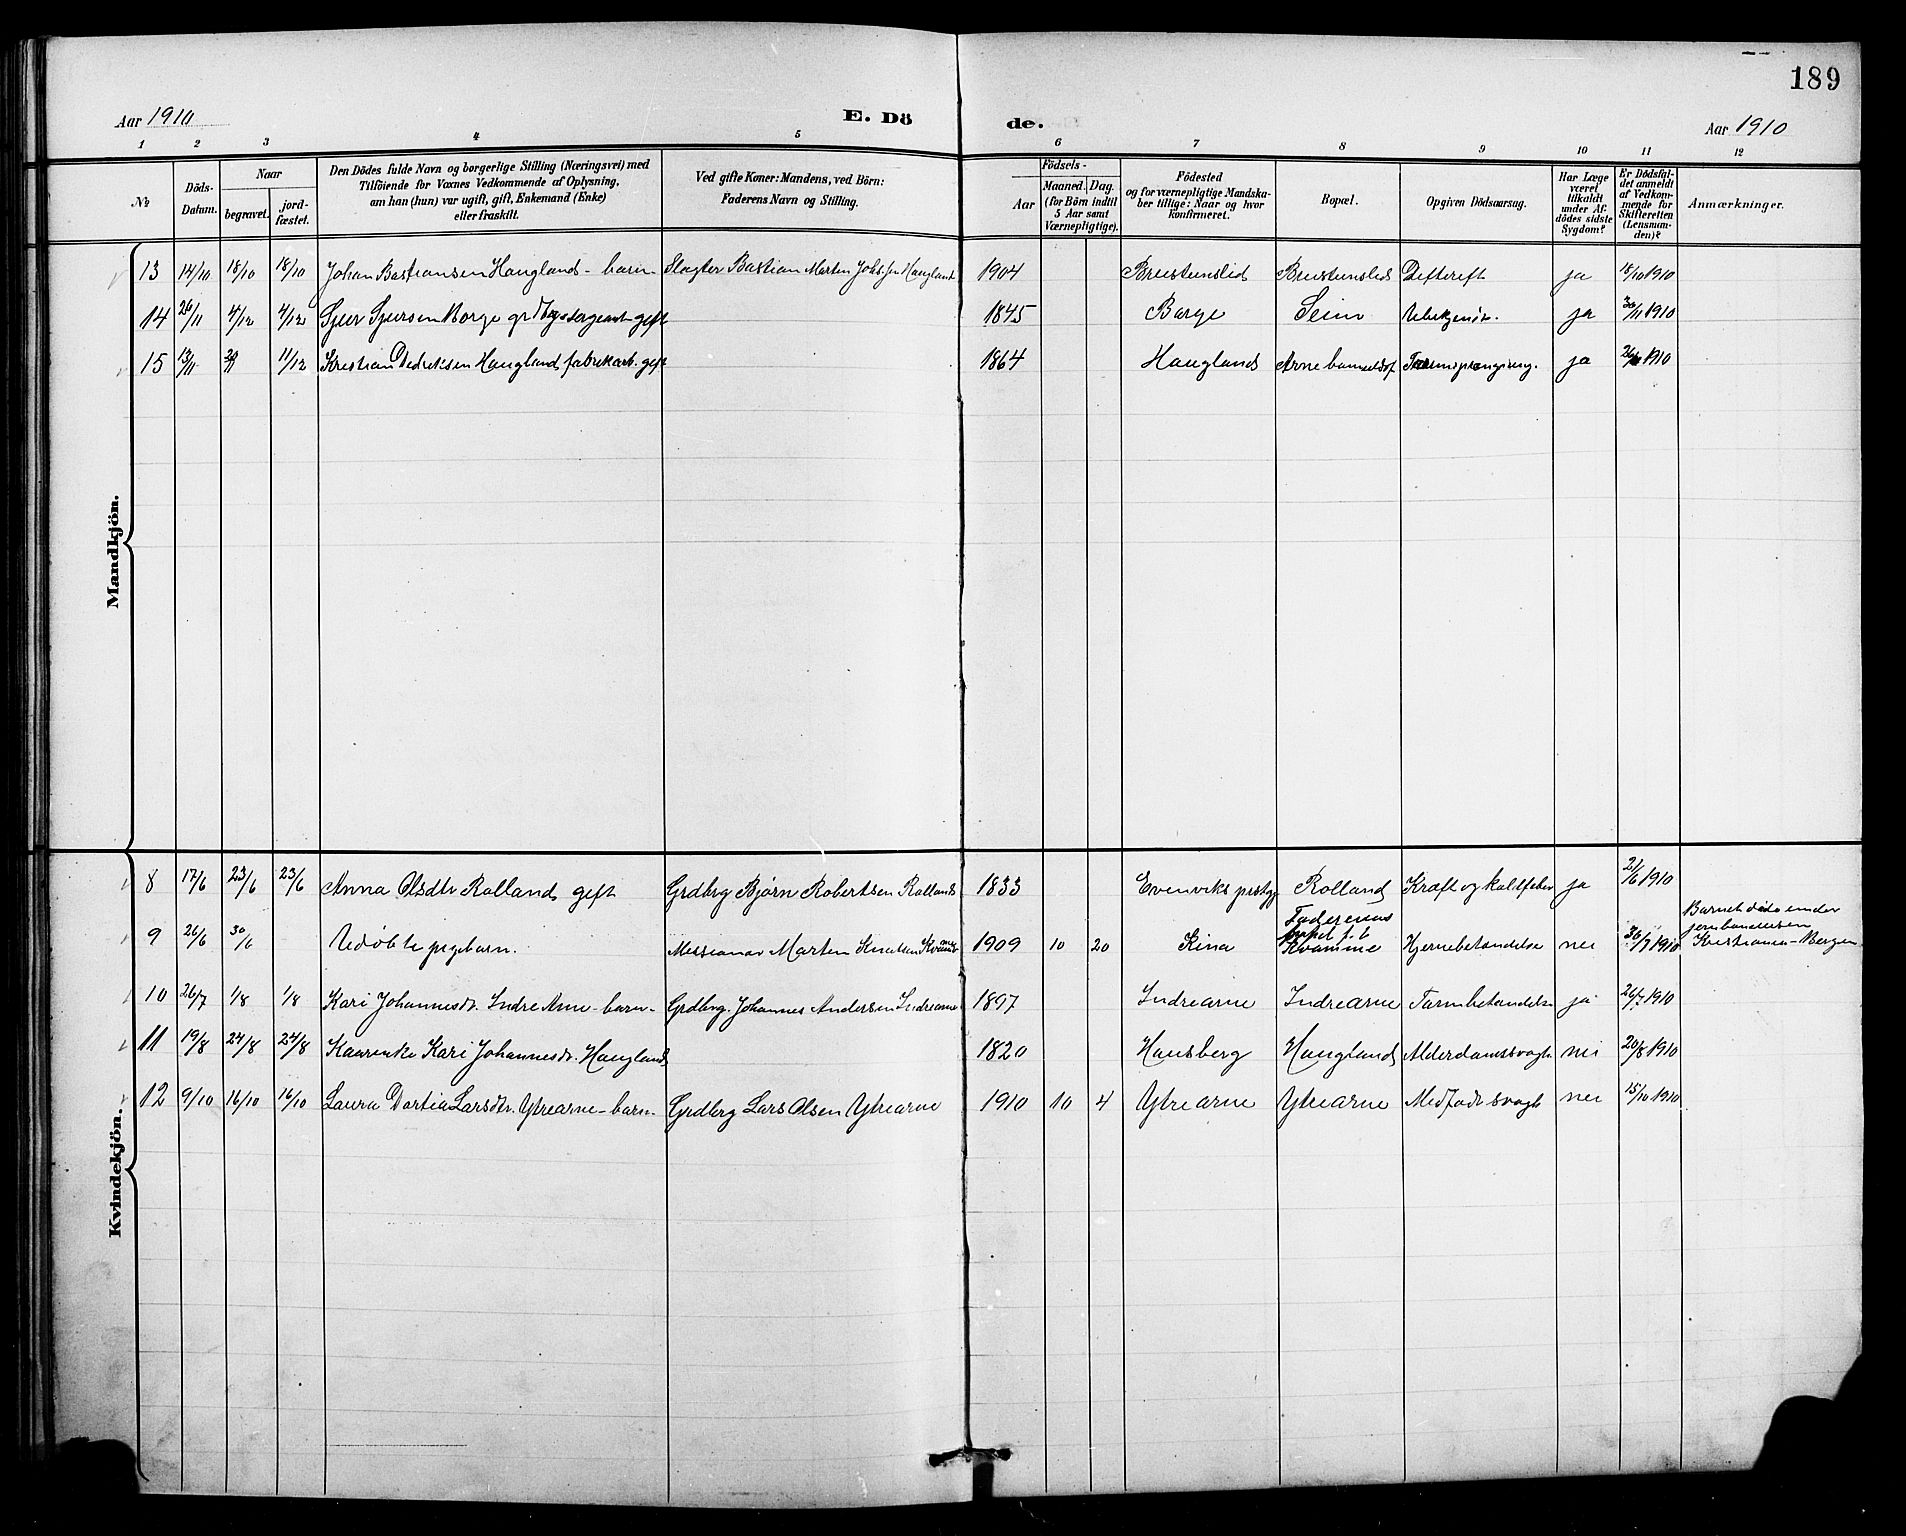 189
Aar 1910 E. Dö de. Aar 1910
1 2 3 4 5 6 7 8 9 10 11 12
No
Döds-Datum.
Naar
begravet.
jord-fæstet.
Den Dödes fulde Navn og borgerlige Stilling (Næringsvei) med
Tilföiende for Voxnes Vedkommende af Oplysning,
om han (hun) var ugift, gift, Enkemand (Enke)
eller fraskilt.
Ved gifte Koner: Mandens, ved Börn:
Faderens Navn og Stilling.
Födsels-
Aar
Maaned. Dag.
(for Börn indtil
5 Aar samt
Værnepligtige).
Födested
og for værnepligtige Mandska-
ber tillige: Naar og hvor
konfirmeret.
Bopæl.
Opgiven Dödsaarsag.
Har Læge
været
tilkaldt
under Af-
dödes sidste
Sygdom?
Er Dödsfal-
det anmeldt
af Vedkom-
mende for
Skifteretten
(Lensman-
den)?
Anmærkninger.
Mandkjön.
13 14/10 18/10 18/10 Johan Bastiansen Haugland - barn - Slagter Bastian Marten Haugland 1904 Difterift ja 18/10 1910
14 26/11 4/12 4/12 Sjur Sjursen Borge gift 1845 Borge Seim ja 30/11 1910
15 13/11 11/12 Kristian Dedriksen Haugland fabrikarb. gift 1864 Haugland Arne ja 1910
Kvindekjön.
8 17/6 23/6 23/6 Anna Olsdtr Rolland gift Grdbrg Bjørn Robertsen Rolland 1833 Evenviks prstgj Rolland Kræft og koldfeber ja 21/6 1910
9 26/6 30/6 Udøbte pigebarn. Missionær Marten Knutsen 1909 10 20 Kina Faderens Kvamme Hjernebetændelse nei 1910 Barnet døde under
jernbanereisen
Kristiania - Bergen
10 26/7 1/8 1/8 Kari Johannesdr. Indre Arne - barn - Grdbrg. Johannes Andersen Indrearne 1897 Indrearne Indrearne Tarmbetændelse ja 26/7 1910
11 19/8 24/8 24/8 Kaarenke Kari Johannesdr. Haugland 1820 Hausberg Haugland Alderdomssvagh nei 20/8 1910
12 9/10 16/10 16/10 Laura Dortea Larsdtr. Ytrearne - barn - Grdbrg Lars Olsen Ytrearne 1910 10 4 Ytrearne Ytrearne Medfødt svagh nei 15/10 1910